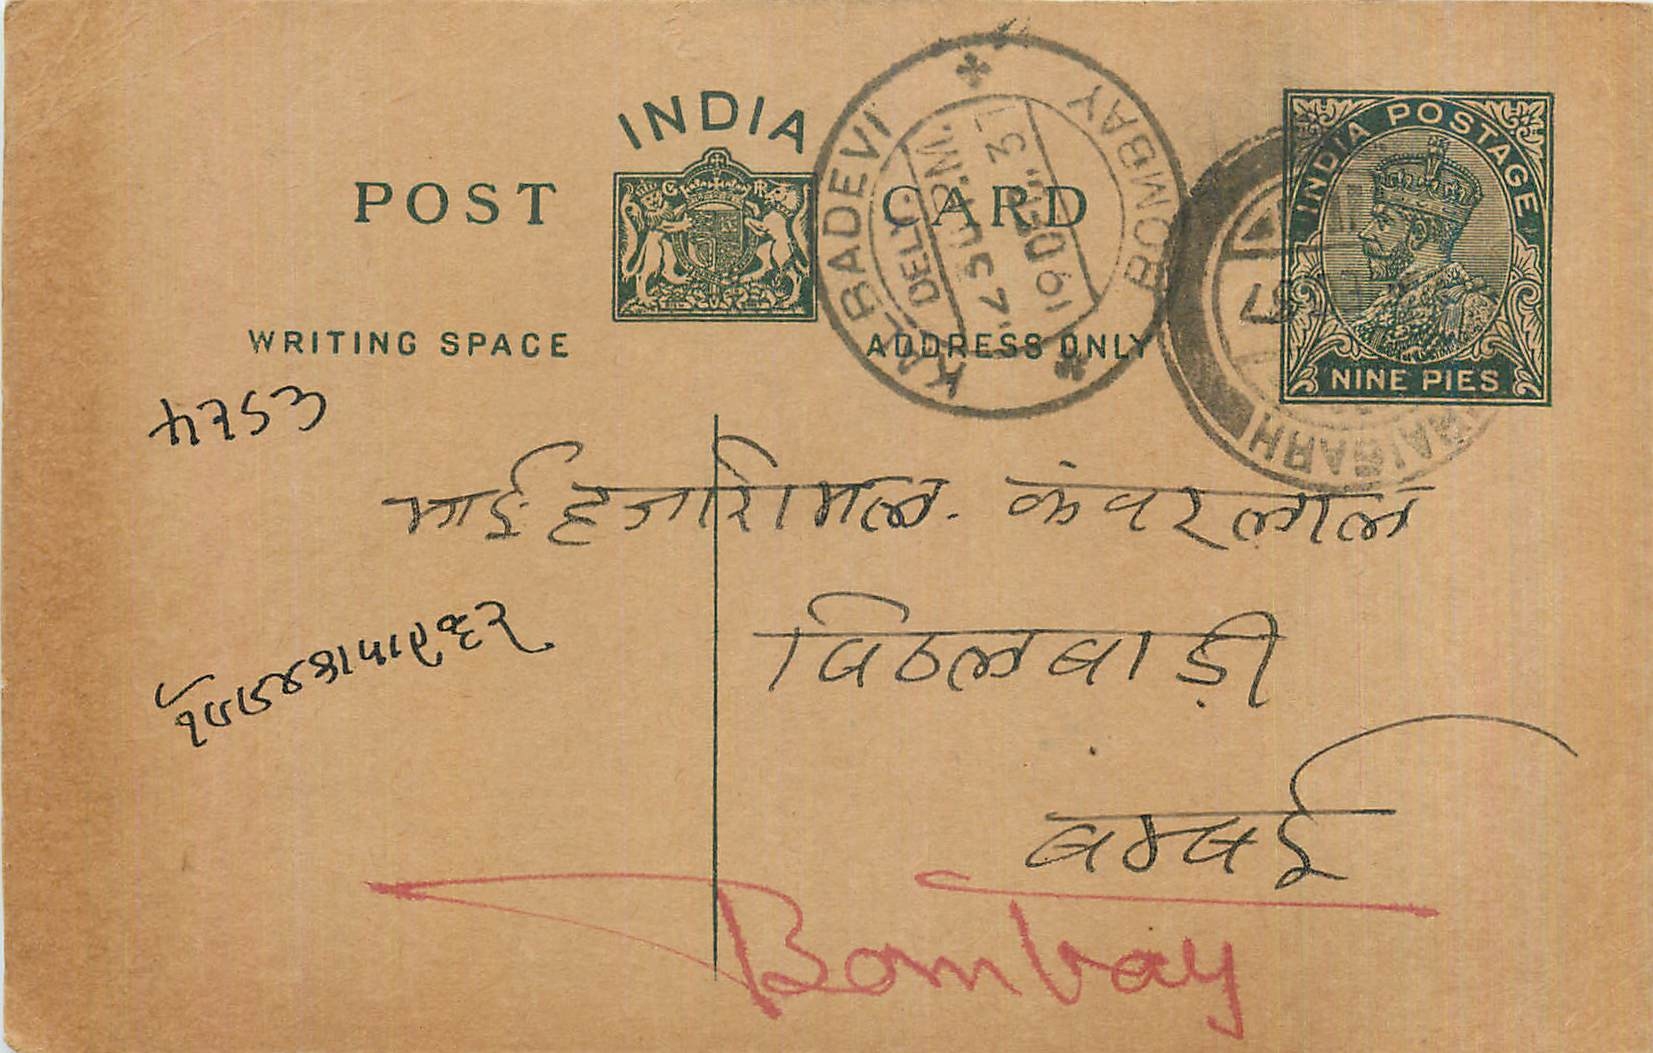 INDIA
POST CARD
WRITING SPACE ADDRESS ONLY
KALBADEVI BOMBAY
DELY.
7 30 P.M.
19 DEC. 37
INDIA POSTAGE
NINE PIES
37
भाई हजारिमल. कंवरलाल
विठलवाड़ी
बम्बई
Bombay